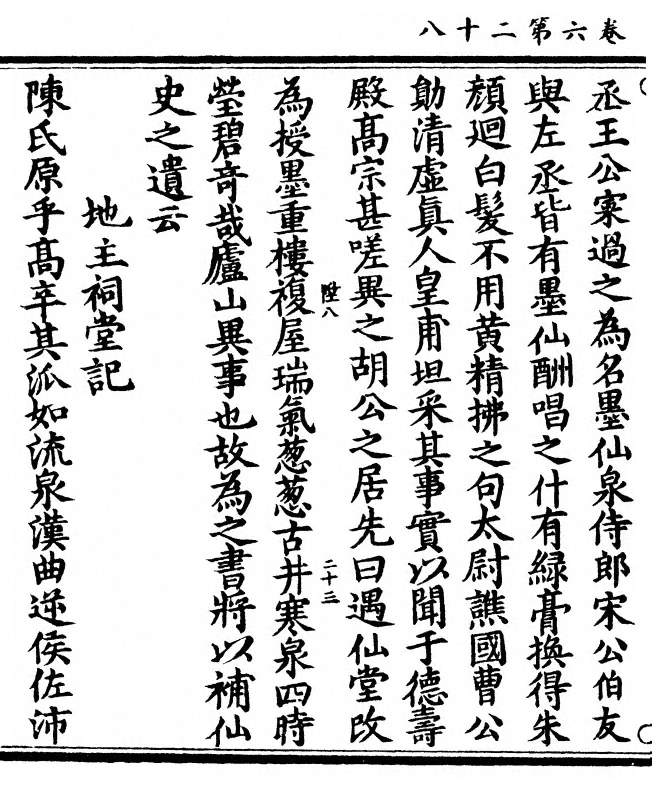 卷六第二十八
丞王公寀過之為名墨仙泉侍郎宋公伯友
與左丞皆有墨仙酬唱之什有綠膏換得朱
顔迴白髮不用黄精拂之句太尉譙國曹公
勛清虛眞人皇甫坦采其事實以聞于德壽
殿髙宗甚嗟異之胡公之居先曰遇仙堂改
陞八
二十三
為授墨重樓複屋瑞氣葱葱古井寒泉四時
瑩碧竒哉廬山異事也故為之書將以補仙
史之遺云
地主祠堂記
陳氏原乎髙卒其派如流泉漢曲逆侯佐沛